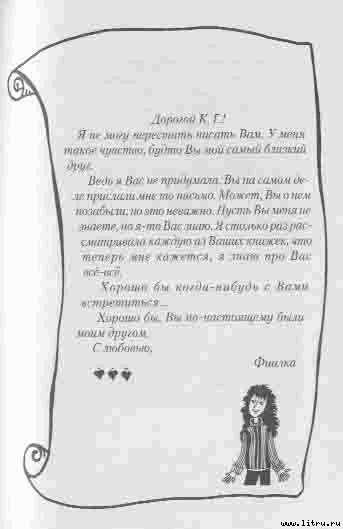 Дорогой К. Г.!
Я не могу перестать писать Вам. У меня
такое чувство, будто Вы мой самый близкий
друг.
Ведь я Вас не придумала. Вы на самом де-
ле прислали мне то письмо. Может, Вы о нем
позабыли, но это неважно. Пусть Вы меня не
знаете, но я-то Вас знаю. Я столько раз рас-
сматривала каждую из Ваших книжек, что
теперь мне кажется, я знаю про Вас
всё-всё.
Хорошо бы когда-нибудь с Вами
встретиться...
Хорошо бы, Вы по-настоящему были
моим другом.
С любовью,
Фиалка
www.litru.ru